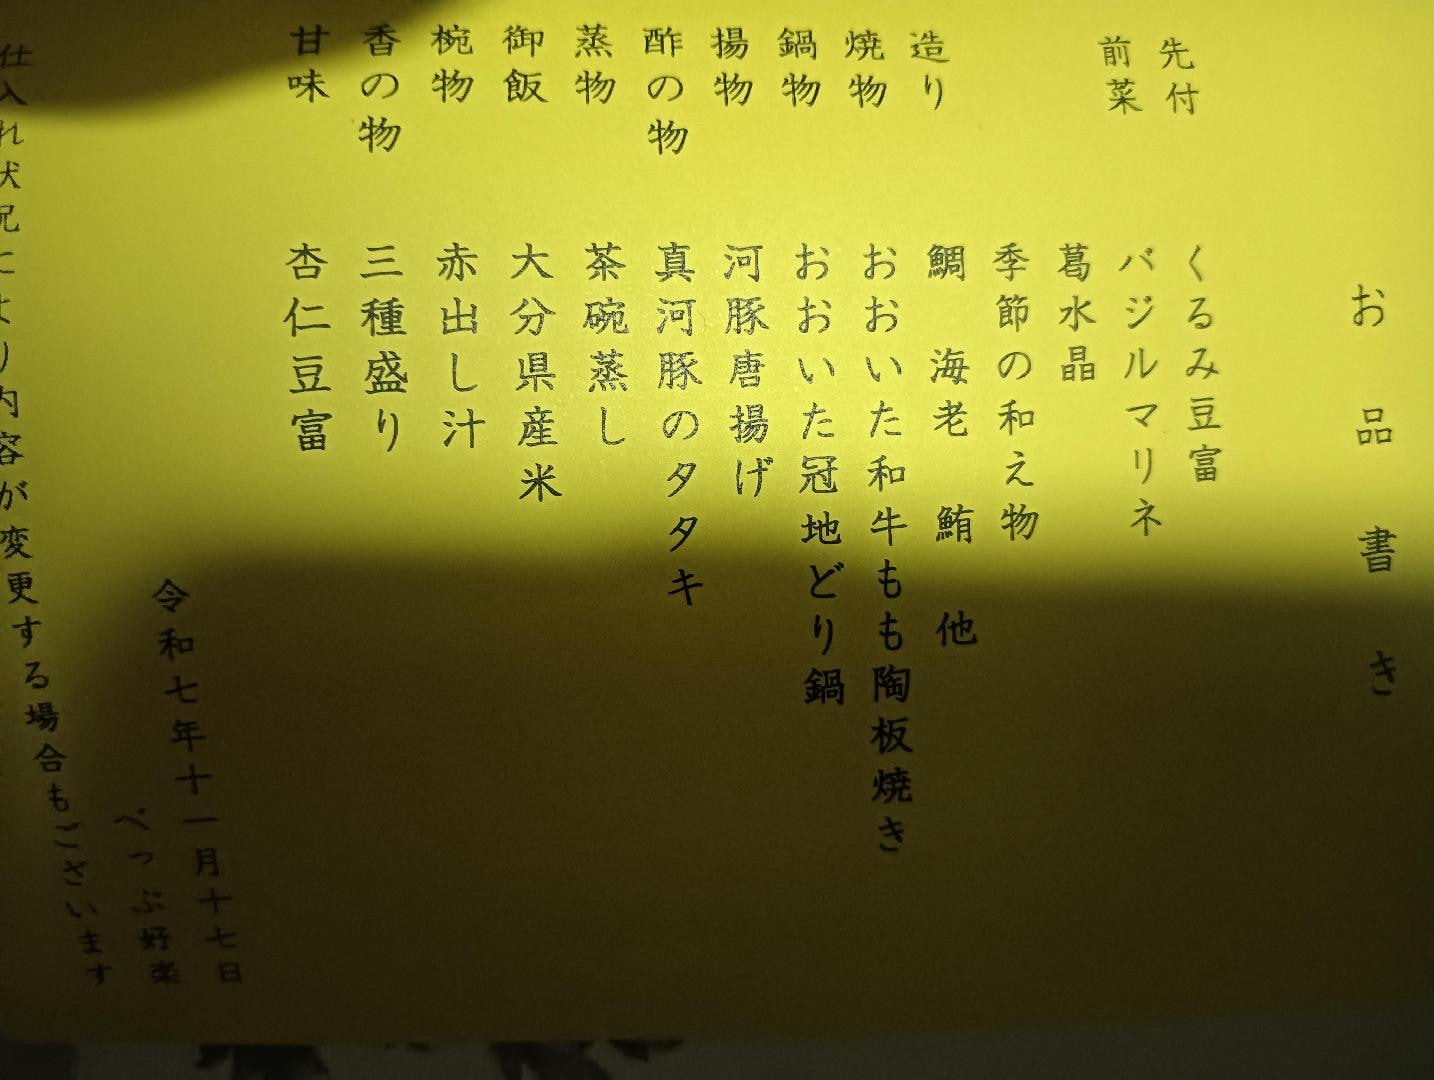 お品書き
先付 くるみ豆富
前菜 バジルマリネ
葛水晶
季節の和え物
造り 鯛 海老 鮪 他
焼物 おおいた和牛もも陶板焼き
鍋物 おおいた冠地どり鍋
揚物 河豚唐揚げ
酢の物 真河豚のタタキ
蒸物 茶碗蒸し
御飯 大分県産米
椀物 赤出し汁
香の物 三種盛り
甘味 杏仁豆富
令和七年十一月十七日
べっぷ好楽
仕入れ状況により内容が変更する場合もございます